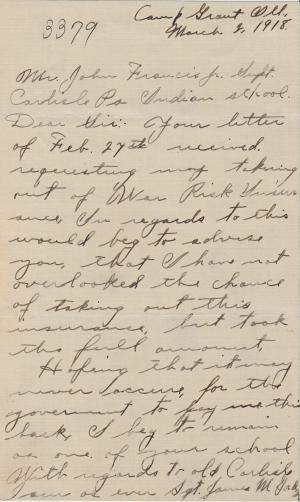 3379
Camp Grant Ill,
March 2, 1918.
Mr. John Francis Jr. Supt.
Carlisle Pa Indian school.
Dear Sir:- Your letter
of Feb. 27th received.
requesting my taking
out of War Risk Insur
ance, In regards to this
would beg to advise
you, that I have not
overlooked the chance
of taking out this
insurance, but took
the full amount.
Hoping that it may
never accure, for the
goverment to pay me this
back, I beg to remain
as one of your school
With regards to old Carlisle
I am as ever Sgt. James M.